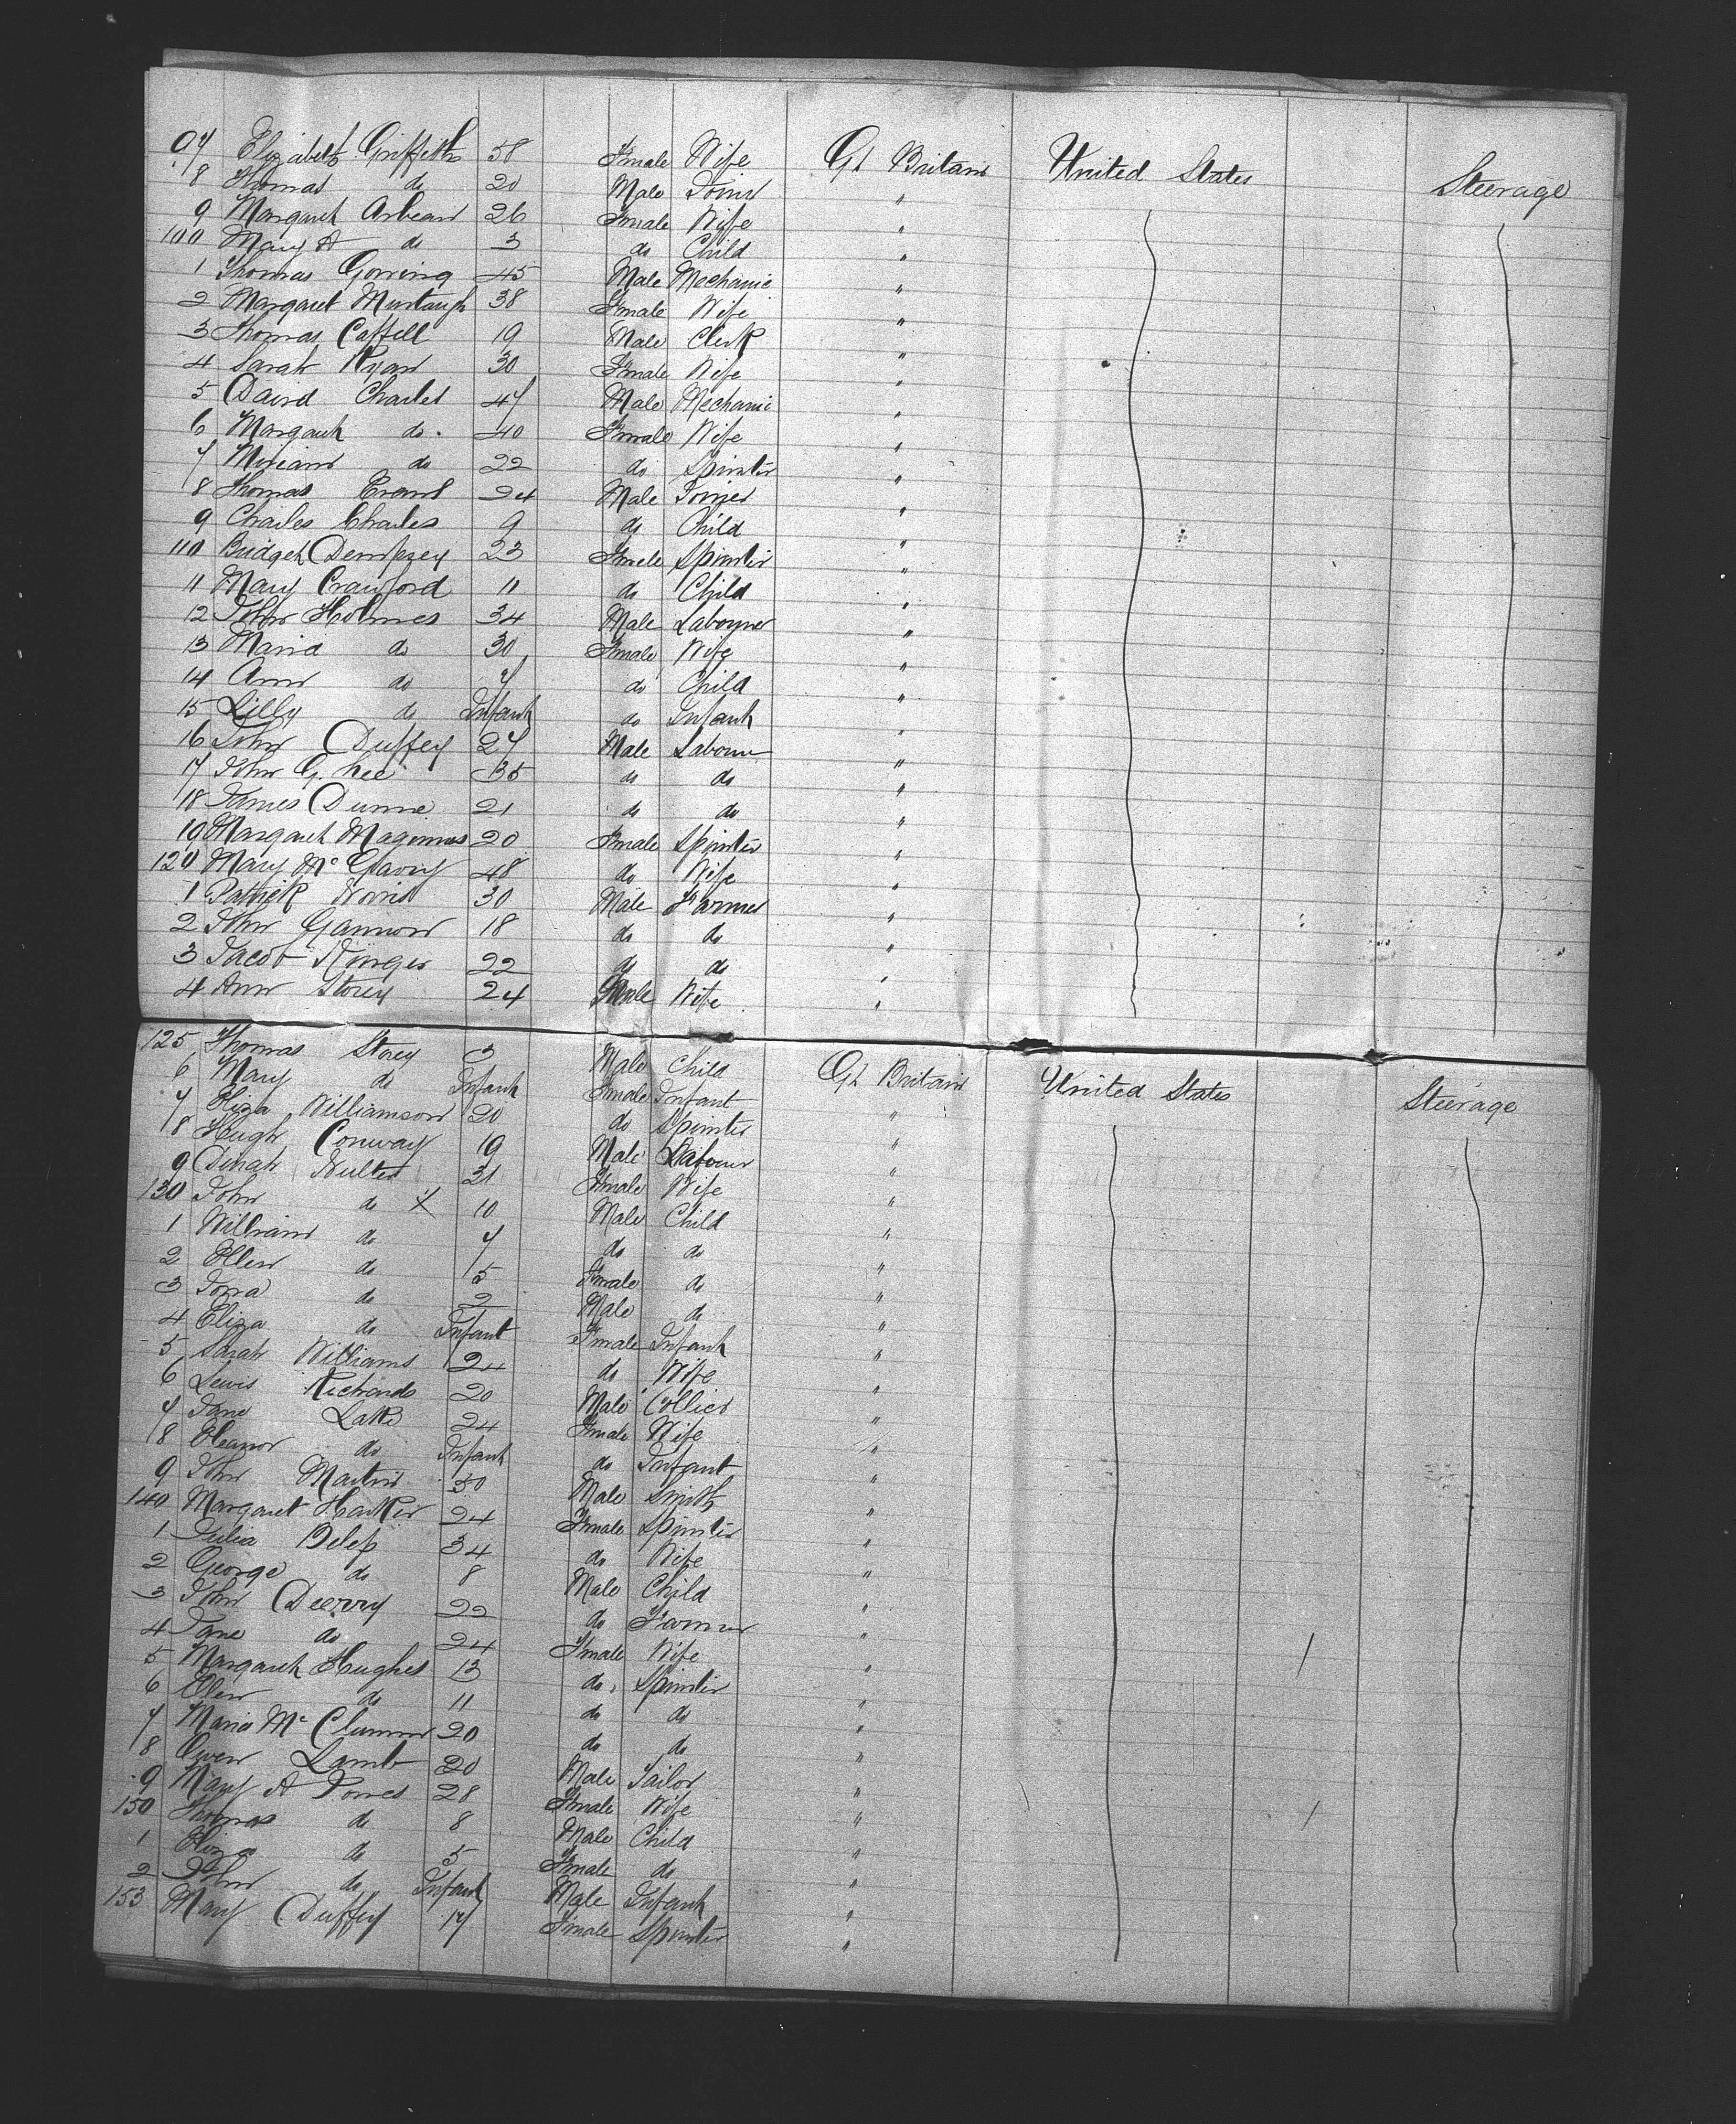 97 Elizabeth Griffiths 58 Female Wife Gt Britain United States Steerage
8 Thomas do 20 Male Joiner "
9 Margaret 26 Female Wife "
100 Mary A do 3 do Child "
1 Thomas Gorring 45 Male Mechanic "
2 Margaret Murtaugh 38 Female Wife "
3 Thomas Caffell 19 Male Clerk "
4 Sarah Ryan 30 Female Wife "
5 David Charles 47 Male Mechanic "
6 Margaret do. 40 Female Wife "
7 Miriam do 22 do Spinster "
8 Thomas Evans 24 Male Joiner "
9 Charles Charles 9 do Child "
110 Bridget Dempzey 23 Female Spinster "
11 Mary Crawford 11 do Child "
12 John Holmes 34 Male Labourer "
13 Maria do 30 Female Wife "
14 Ann do 7 do Child "
15 Lilly do Infant do Infant "
16 John Duffey 27 Male Labourer "
17 John G. Lee 35 do do "
18 James Dunne 21 do do "
19 Margaret Maginnus 20 Female Spinster "
120 Mary Mc Garry 48 do Wife "
1 Patrick Norris 30 Male Farmer "
2 John Gannon 18 do do "
3 Jacob 22 do do "
4 Ann Storey 24 Female Wife "
125 Thomas Storey 3 Male Child Gt Britain United States Steerage
6 Mary do Infant Female Infant "
7 Eliza Williamson 20 do Spinster "
8 Hugh Conway 19 Male Labourer "
9 Dinah Nulter 31 Female Wife "
130 John do X 10 Male Child "
1 William do 7 do do "
2 Ellen do 5 Female do "
3 do 2 Male do "
4 Eliza do Infant Female Infant "
5 Sarah Williams 24 do Wife "
6 Lewis Richards 20 Male Collier "
7 Jane Lake 24 Female Wife "
8 Eleanor do Infant do Infant "
9 John Martin 30 Male Smith "
140 Margaret Harker 24 Female Spinster "
1 Julia 34 do Wife "
2 George do 8 Male Child "
3 John Deerry 22 do Farmer "
4 Jane do 24 Female Wife "
5 Margaret Hughes 13 do. Spinster "
6 Ellen do 11 do do "
7 Maria Mc 20 do do "
8 Owen Lamb 20 Male Tailor "
9 Mary A Jones 28 Female Wife "
150 Thomas do 8 Male Child "
1 Eliza do 5 Female do "
2 John do Infant Male Infant "
153 Mary Duffy 17 Female Spinster "